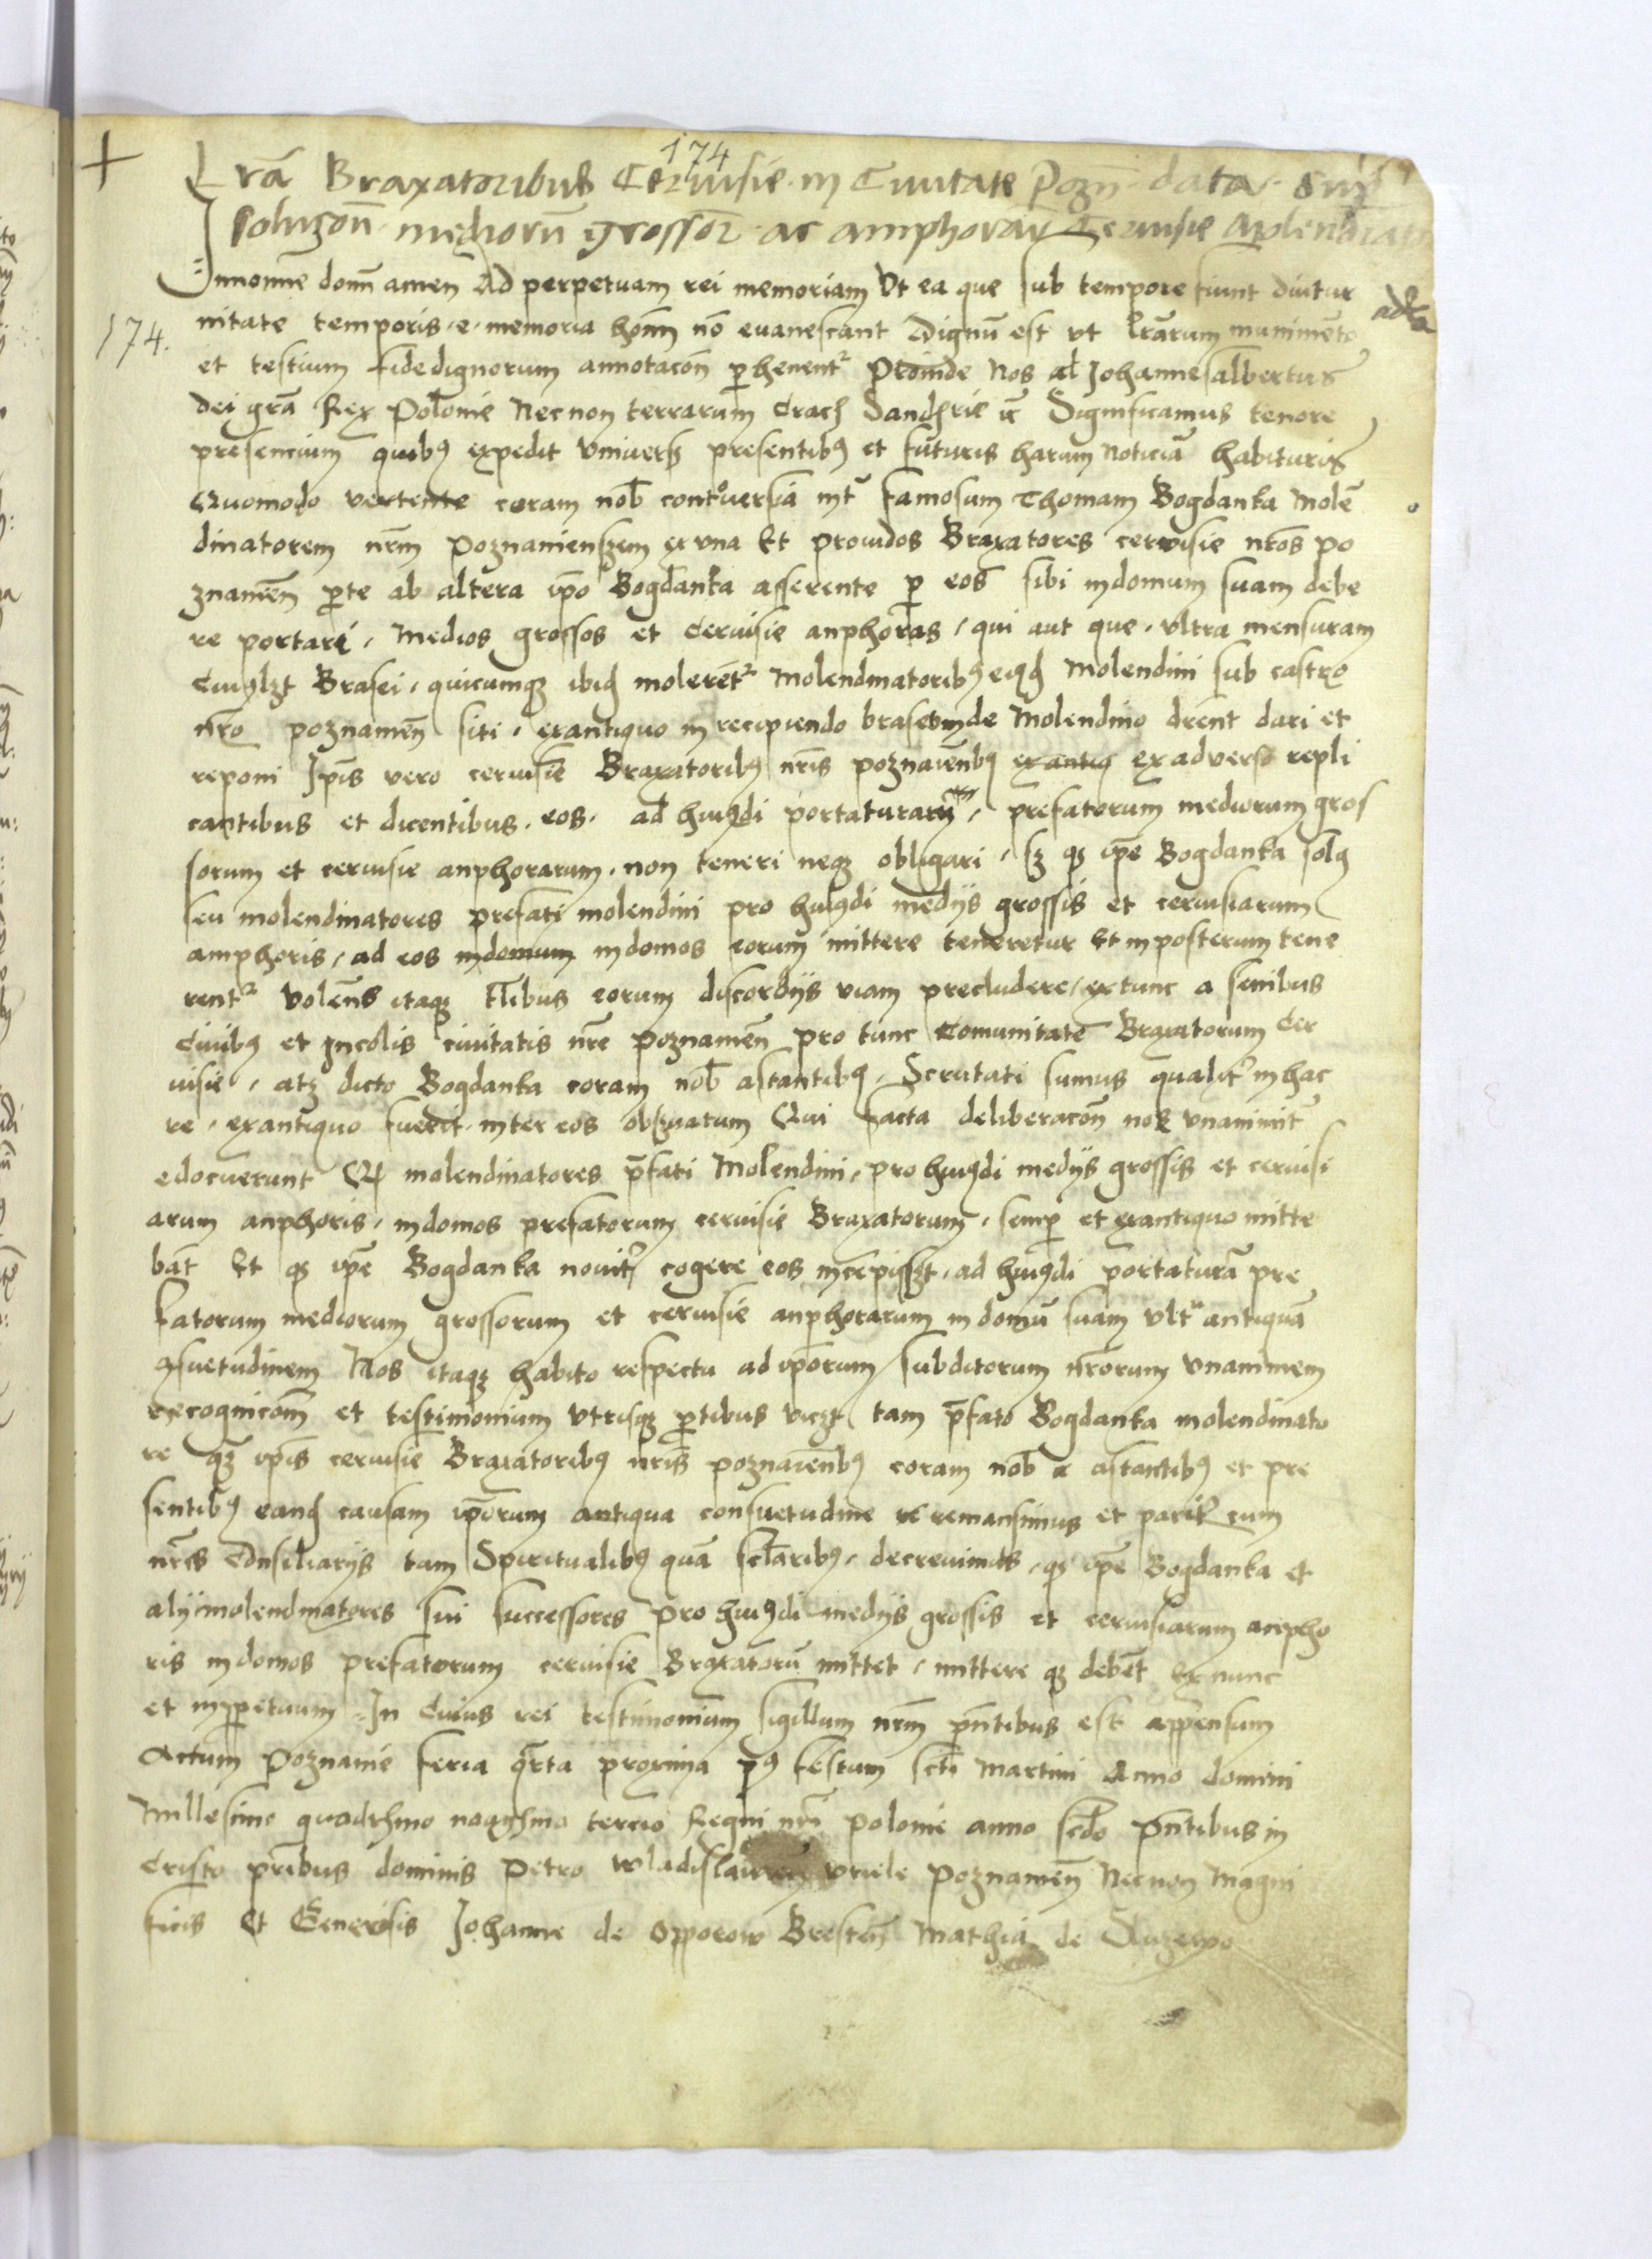 174
Lrā Braxatoribus Ceruisie in Ciuitate Pozn̄ data sup
soluzon̄ mediorū grossor ac amphorar Ceruisie
174.
Innomīe domī amen Ad perpetuam rei memoriam Vt ea que sub tempore fiunt diutur
nitate temporis e memoria hoīm nō euanescant Dignū est vt lrārum munimēto
et testium fidedignorum annotacōn perhenent Proinde Nos Johannes albertus
dei grā Rex Polonie Necnon terrarum Crac Sandrie ic Significamus tenore
presencium quibus expedit vniuers presentibus et futuris harum noticiā habituris
Quomodo vertente coram nob controuersia int famosum Thomam Bogdanka Molē
dinatorem nrm Poznanienszem ex vna Et prouidos Braxatores ceruisie nros po
znamēn pte ab altera ipo Bogdanka asserente p eos sibi indomum suam debe
re portari, Medios grossos et Ceruisie anphoras, qui aut que vltra mensuram
Cuiuslzt Brasei, quicumqz ibid molerent Molendinatoribus eiusd Molendini sub castro
nro poznamēn siti, exantiquo in recipiendo braseuminde Molendino drent dari et
reponi Ipīs vero ceruisie Braxatoribus nrīs poznaīenbus exantiq ex aduerso repli
cantibus et dicentibus eos ad huiusdi portaturarū, prefatorum mediorum gros
sorum et ceruisie anphorarum, non teneri neqz obligari, sz qz ipe Bogdanka solus
seu molendinatores prefati molendini pro huiusdi medijs grossis et ceruisiarum
amphoris, ad eos indomum indomos eorum mittere teneretur Et inposterum tene
rent Volens itaqz tlibus eorum discordijs viam precludere, extunc a senibus
Ciuibus et Incolis ciuitatis nre poznamēn pro tunc Comunitate Braxatorum Cer
uisie, atqz dicto Bogdanka coram nob astantibus, Scrutati sumus qualit inhac
re exantiquo fuerit inter eos obseruatum Qui facta deliberacōn nos vnanimit
edocuerunt Qz molendinatores pfati Molendini, pro huiusdi medijs grossis et ceruisi
arum anphoris, indomos prefatorum ceruisie Braxatorum, semp et exantiquo mitte
bāt Et qz ipe Bogdanka nouit cogere eos incepisszt, ad huiusdi portaturā pre
fatorum mediorum grossorum et ceruisie anphorarum in domū suam vlt antiquā
9suetudinem Nos itaqz habito respectu ad ipōrum subditorum nrōrum vnanimem
recognicōm et testimonium vtrisqz ptibus viczt tam pfato Bogdanka molendinato
re qz ipīs ceruisie Braxatoribus nrīs poznaīenbus coram nob a astantibus et pre
sentibus eand causam ipōrum antiqua consuetudine re remansimus et parit cum
nrīs Consiliarijs tam Spiritualibus quā sclaribus, decreuimus, qz ipe Bogdanka et
alijmolendinatores sui successores pro huiusdi medijs grossis et ceruisiarum anpho
ris indomos prefatorum ceruisie Braxatorū mittet, mittere qz debēt Ex nunc
et inppetuum In Cuius rei testimonium sigillum nrm pntibus est appensum
Actum Poznanie feria qrta proxima p9 festum scti Martini Anno domini
Millesimo quadrsmo nogsmo tercio Regni nri polonie anno scdo pntibus in
Cristo pribus dominis Petro wladislauien vriele Poznamēn Necnon Magni
ficis Et Generosis Johanne de Opporow Bresten Mathia de